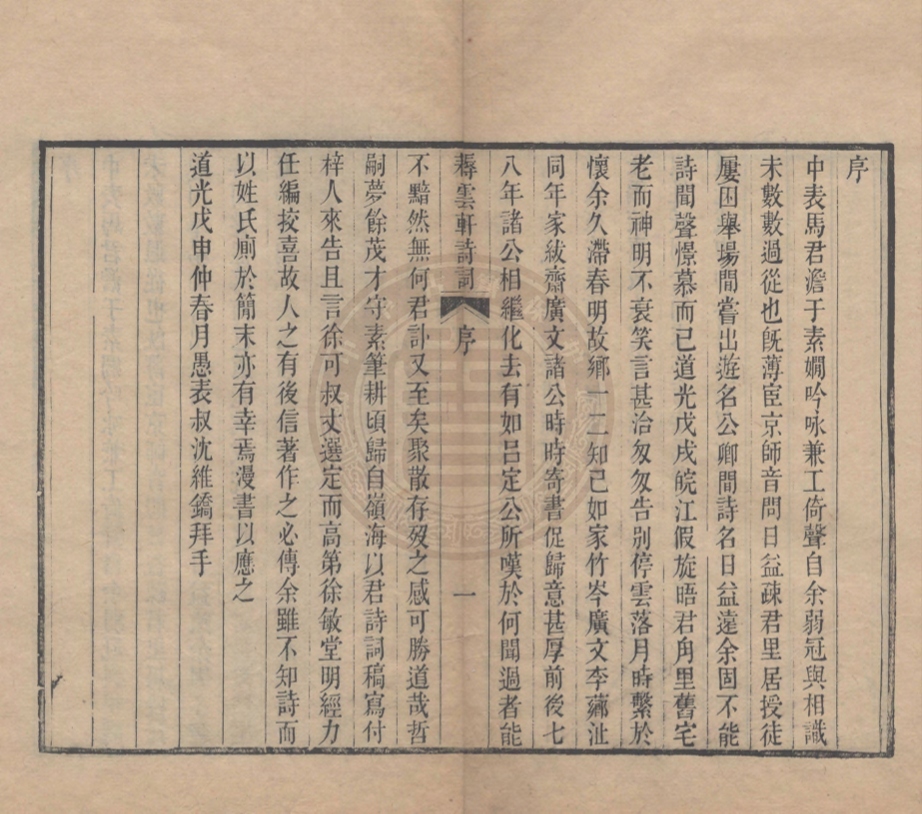 序
中表馬君澹于素嫺吟咏兼工倚聲自余弱冠與相識
未數數過從也旣薄宦京師音問日益疎君里居授徒
屢困舉場閒嘗出遊名公卿間詩名日益遠余固不能
詩聞聲憬慕而已道光戊戌皖江假旋晤君甪里舊宅
老而神明不衰笑言甚洽匆匆告别停雲落月時繫於
懷余久滯春明故鄉一二知己如家竹岑廣文李薌沚
同年家紱齋廣文諸公時時寄書促歸意甚厚前後七
八年諸公相繼化去有如呂定公所嘆於何聞過者能
耨雲軒詩詞 序 一
不黯然無何君訃又至矣聚散存歿之感可勝道哉哲
嗣夢餘茂才守素筆耕頃歸自嶺海以君詩詞稿寫付
梓人來告且言徐可叔丈選定而高第徐敏堂明經力
任編挍喜故人之有後信著作之必傳余雖不知詩而
以姓氏廁於簡末亦有幸焉漫書以應之
道光戊申仲春月愚表叔沈維鐈拜手